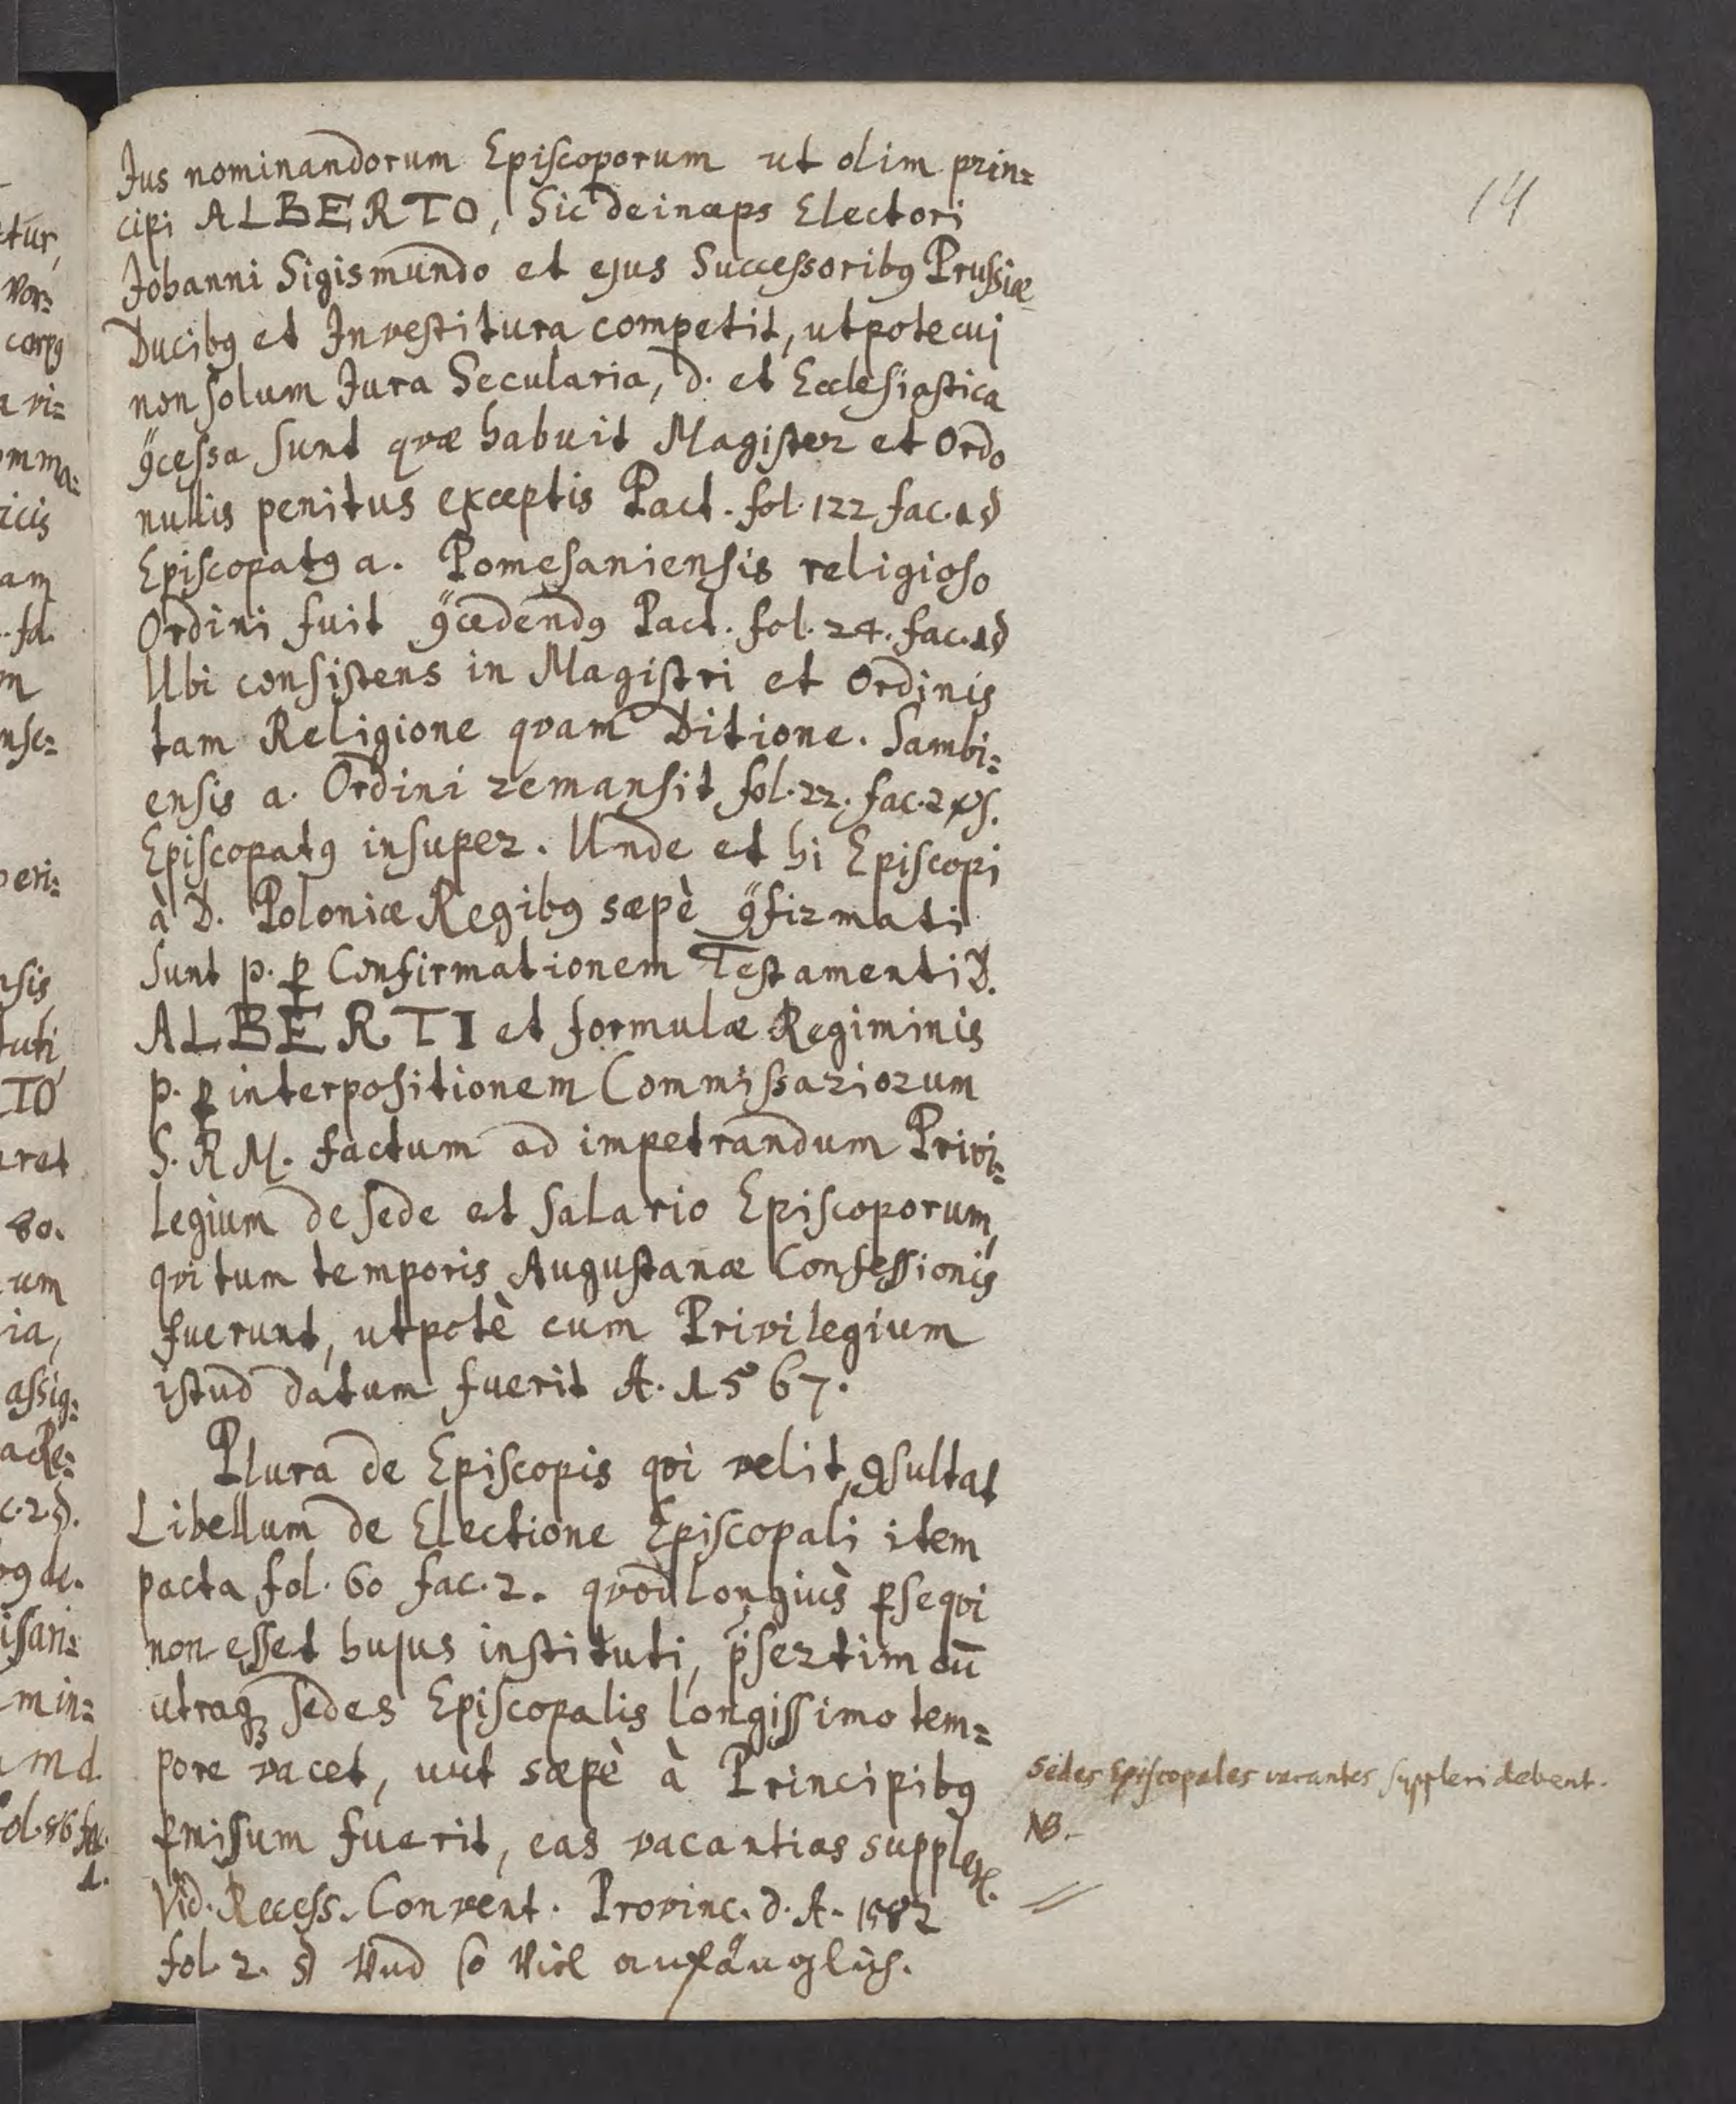 14
Jus nominandorum Episcoporum ut olim prin=
cipi ALBERTO, Sic deinceps Electori
Johanni Sigismundo et ejus Successoribꝯ Prussiæ
Ducibꝯ et Investitura competit, utpote cui
non solum Jura Secularia, d. et Ecclesiastica
ꝯcessa sunt qvæ habuit Magister et Ordo
nullis penitus exceptis Pact. fol. 122 fac. 1
Episcopatꝯ a. Pomesaniensis religioso
Ordini fuit ꝯcedendꝯ Pact. fol. 24. fac. 1
Ubi consistens in Magistri et Ordinis
tam Religione qvam Ditione. Sambi=
ensis a. Ordini remansit fol. 22. fac. 2
Episcopatꝯ insuper. Unde et hi Episcopi
à D. Poloniæ Regibꝯ sæpè ꝯfirmati
sunt p. ꝑ Confirmationem Testamenti D.
ALBERTI et formulæ Regiminis
p. ꝑ interpositionem Commissariorum
S. R M. factum ad impetrandum Privi=
legium de sede et salario Episcoporum,
qvi tum temporis Augustanæ Confessionis
fuerunt, utpotè cum Privilegium
istud datum fuerit A. 1567.
Plura de Episcopis qvi velit, ꝯsultat
Libellum de Electione Episcopali item
pacta fol. 60 fac. 2. qvod longiùs ꝑseqvi
non esset hujus instituti, p̈sertim cū
utraqꝫ sedes Episcopalis longissimo tem=
pore vacet, uut sæpè à Principibꝯ
ꝑmisum fuerit, eas vacantias supplere.
Vid. Recess. Convent. Provinc. d. A. 1582
fol. 2. Und so viel anfänglich.
Sedes Episcopales vacantes suppleri debent.
NB.